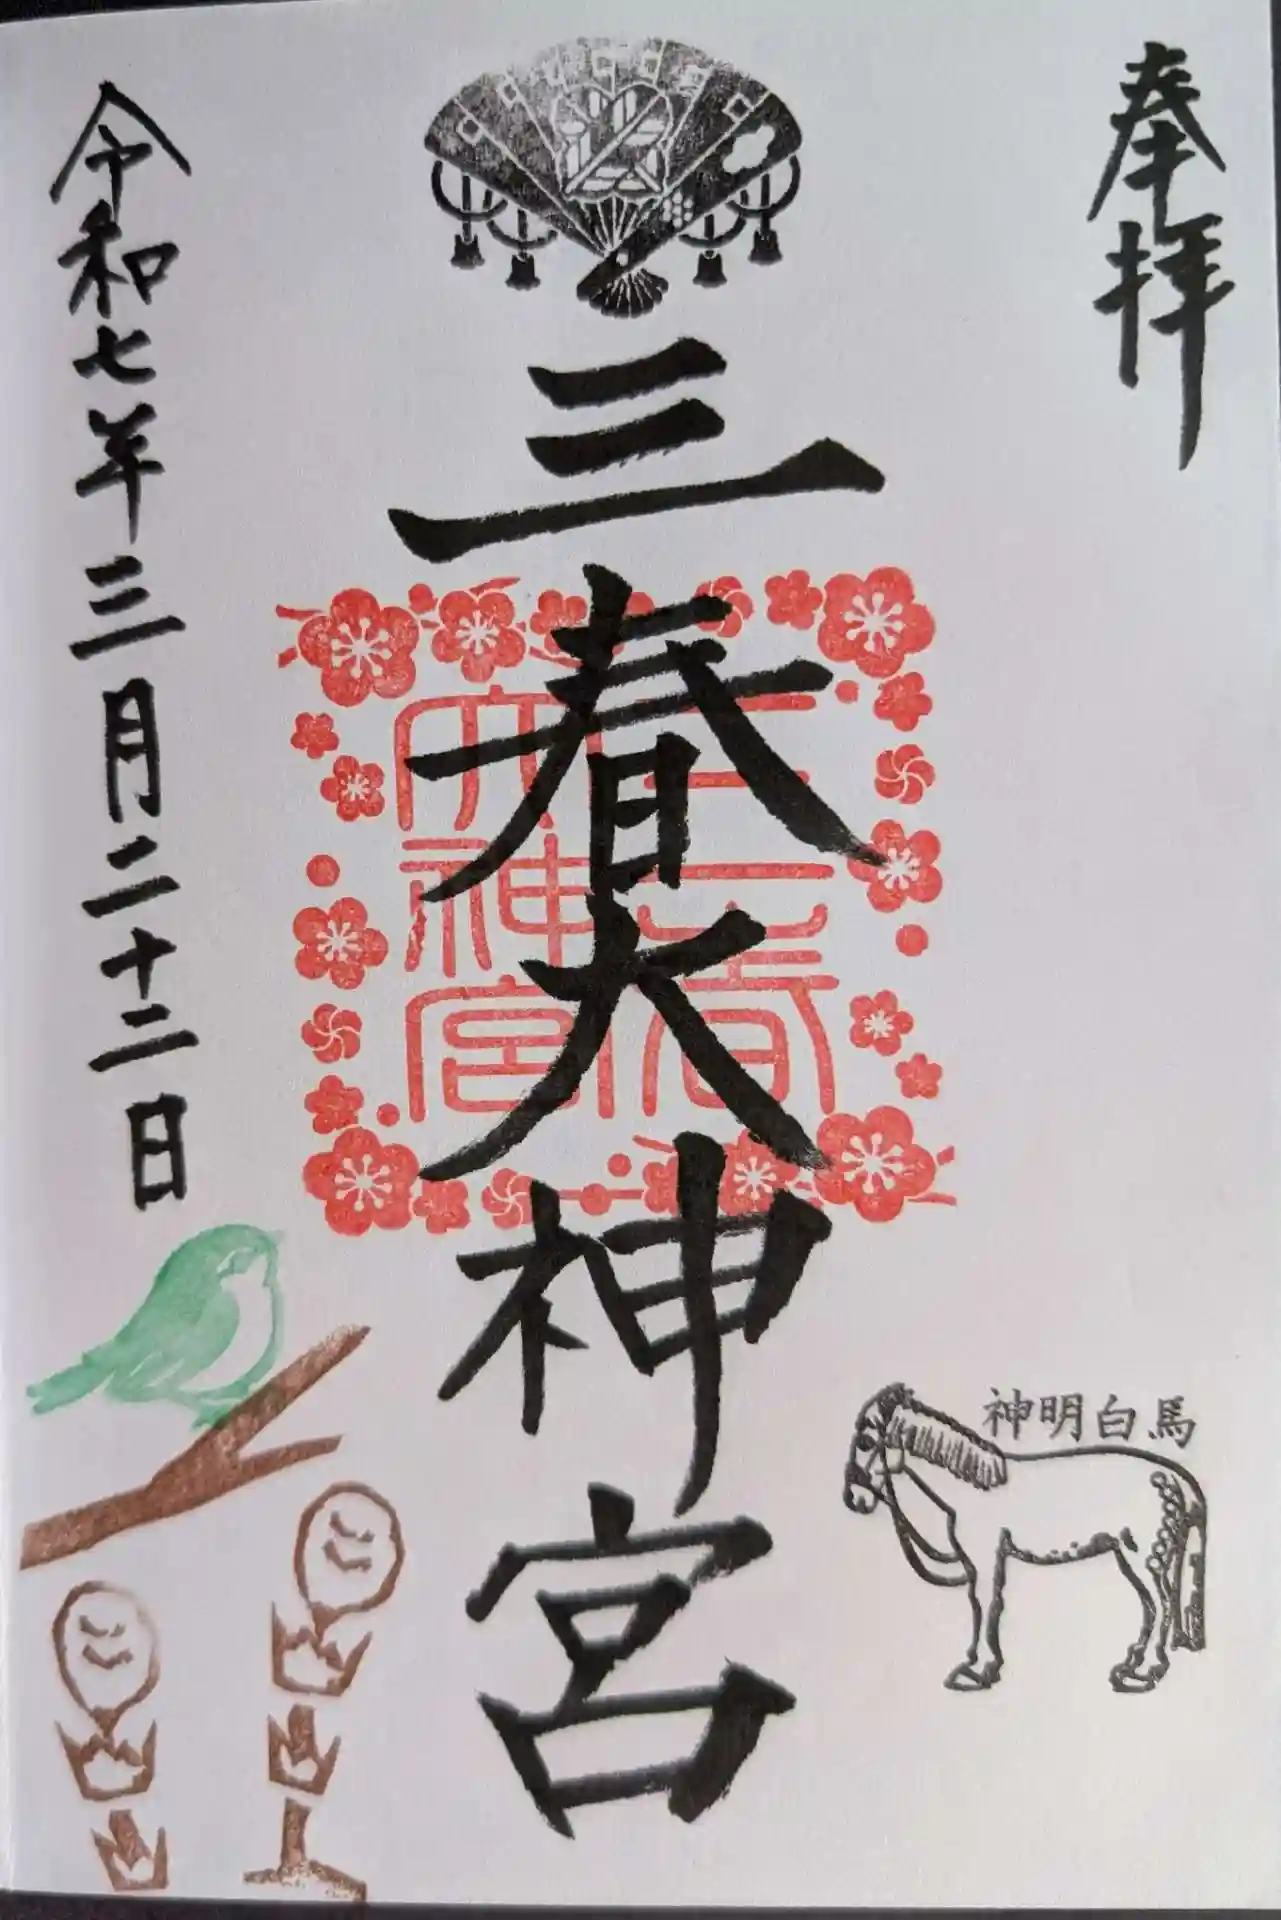 奉拝
神明白馬
三春大神宮
三春
大神宮
令和七年三月二十二日